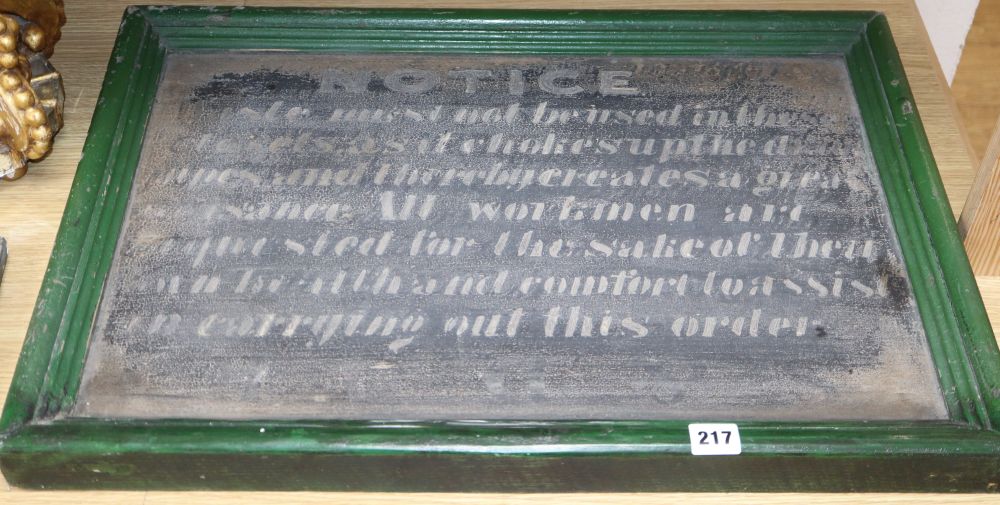 NOTICE
must not be used in these
closets as it chokes up the drain
pipes and thereby creates a great
nuisance. All workmen are
requested for the sake of their
own health and comfort to assist
in carrying out this order
217